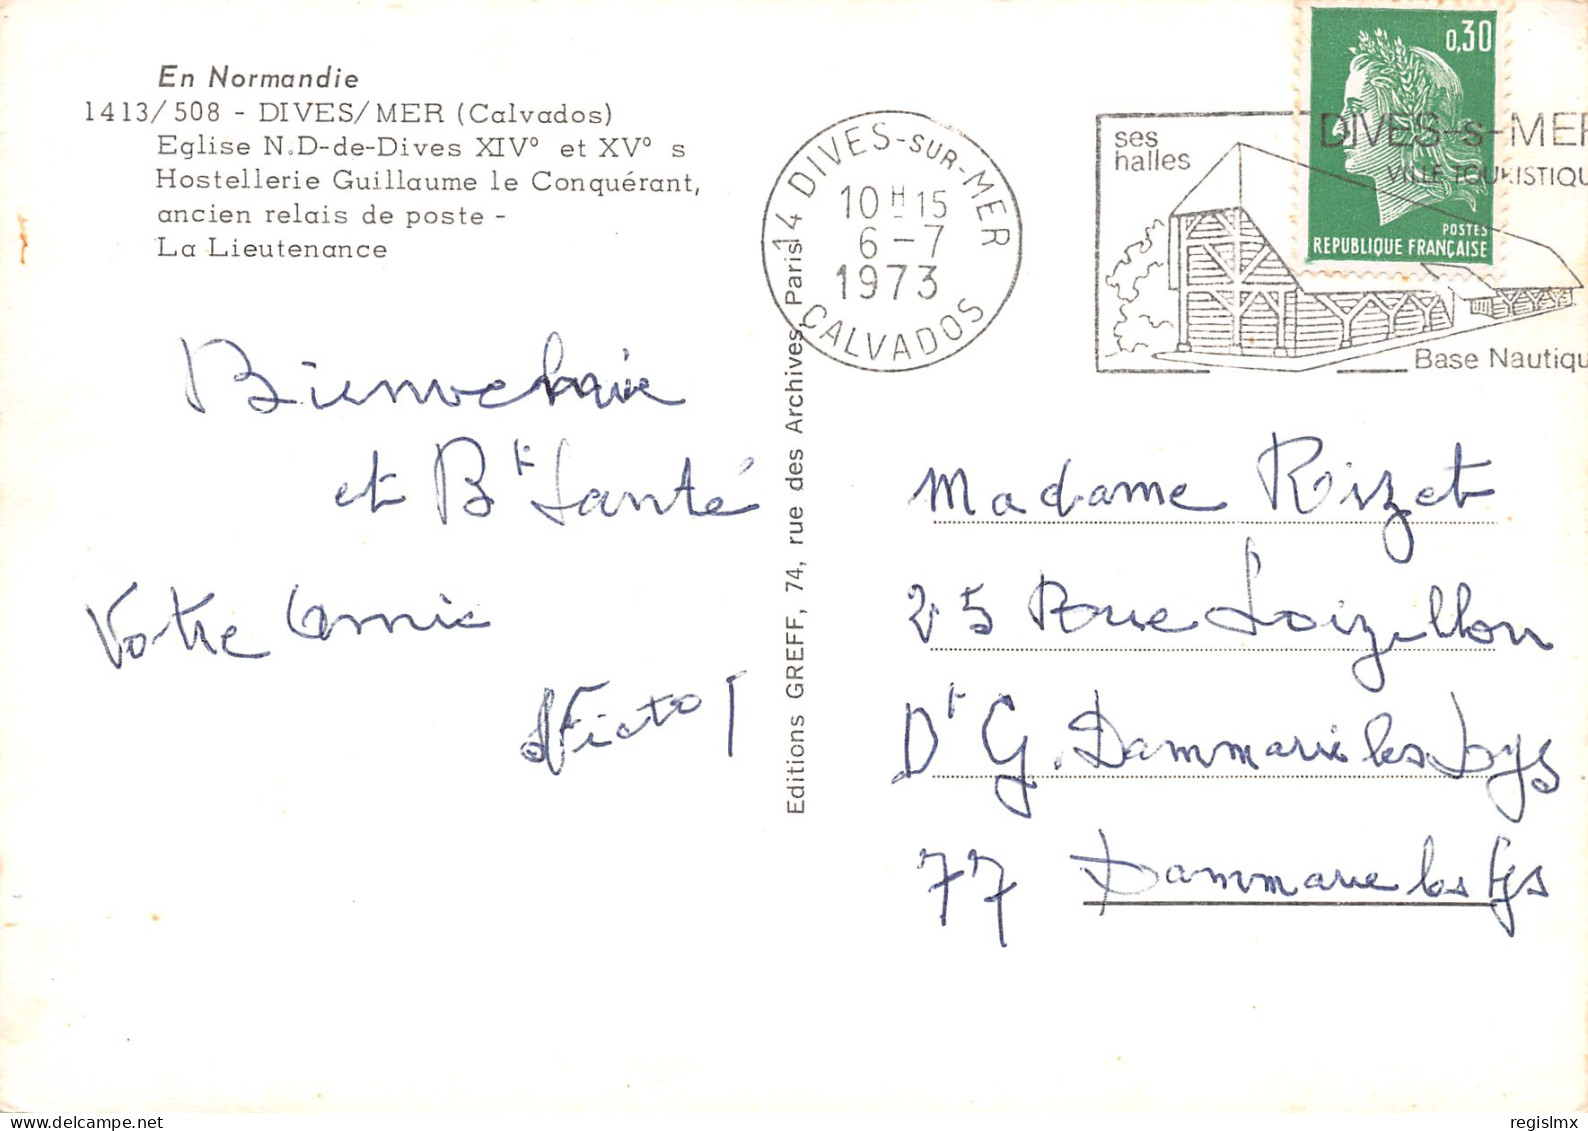 En Normandie
1413/508 - DIVES/MER (Calvados)
Eglise N.D-de-Dives XIV° et XV° s
Hostellerie Guillaume le Conquérant,
ancien relais de poste -
La Lieutenance
14 DIVES-SUR-MER
10 H 15
6 - 7
1973
CALVADOS
ses
halles
DIVES-s-MER
VILLE TOURISTIQU
Base Nautiqu
0,30
POSTES
REPUBLIQUE FRANÇAISE
et Bt Santé
Votre Amie
Editions GREFF, 74, rue des Archives, Paris
Madame Rizet
25 Rue
Dt G. Dammarie les Lys
77 Dammarie les Lys
delcampe.net
regislmx